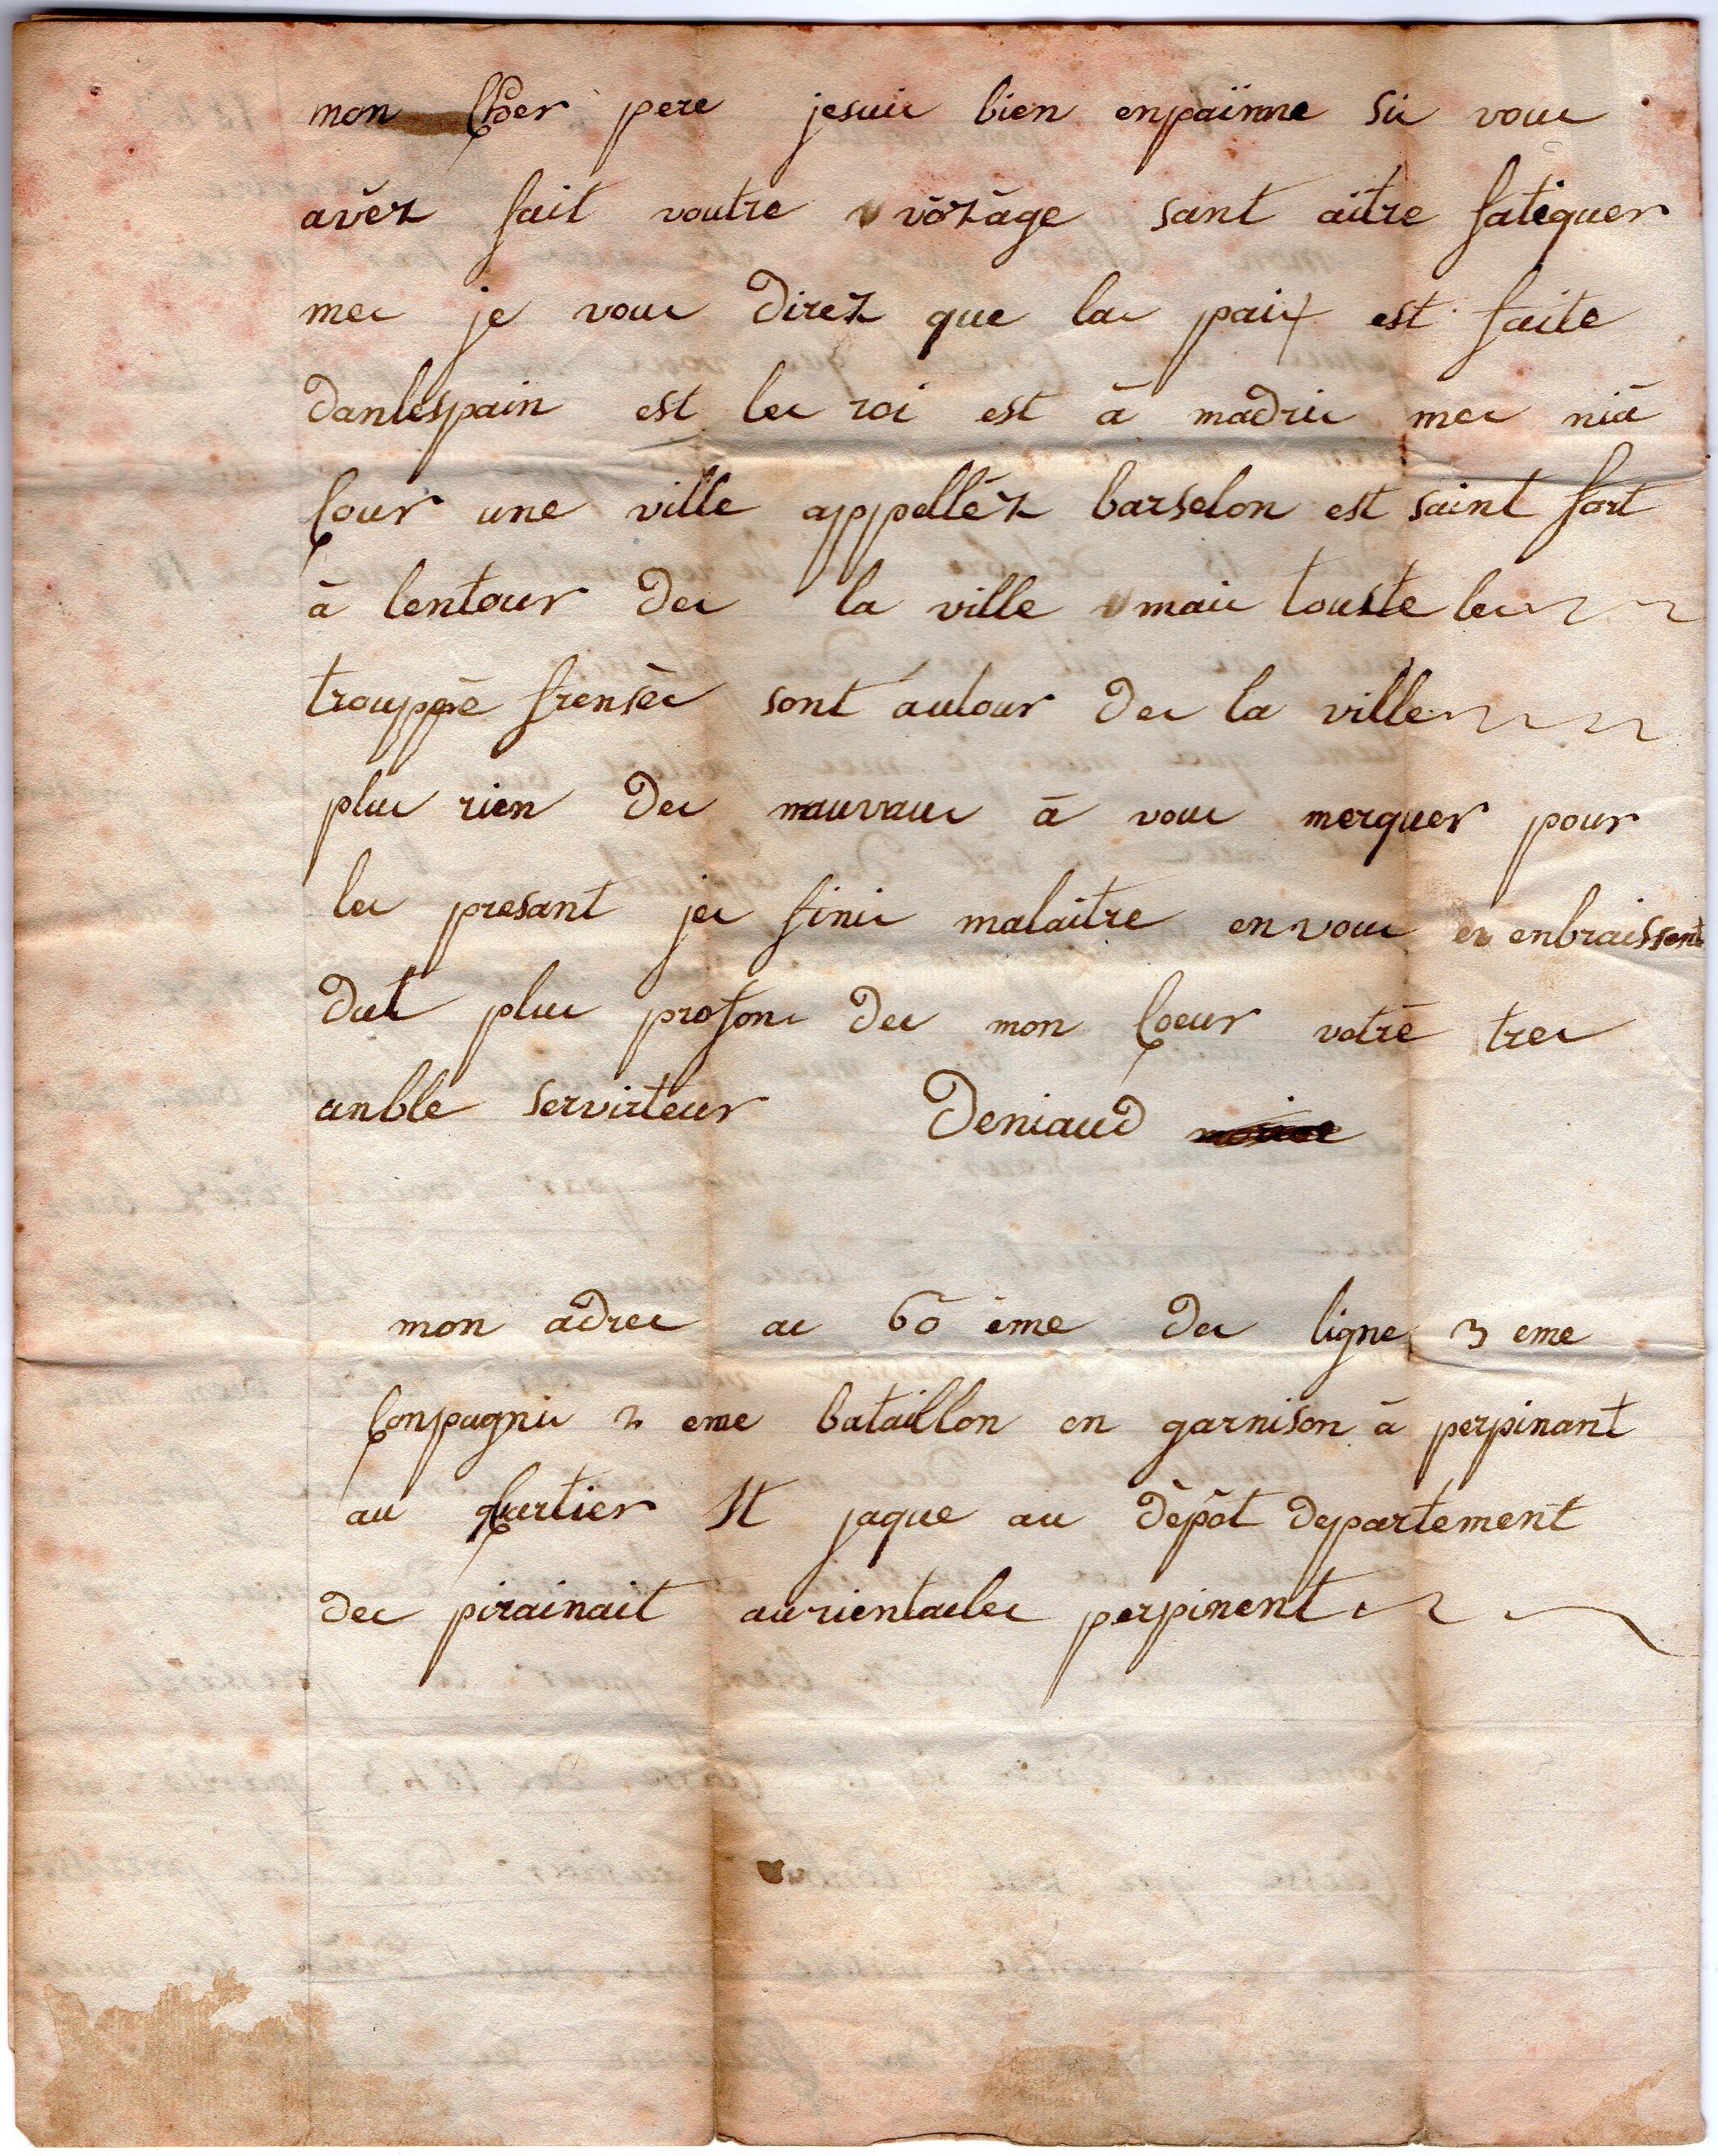 mon Cher pere jesuis bien enpainne si vous
avez fait voutre voyage sant aitre fatiguer
mes je vous direz que la paix est faite
danlespain est les roi est à madris mes nia
cour une ville appellez barselon est saint fort
à lentour des la ville mais touste les
trouppe fransès sont autour des la ville
plus rien des mauvaus à vous merquer pour
les presant jes finis malaitre envous en enbraissent
dut plus profons des mon Coeur votre tres
anble servirteur Deniaud
mon adres au 60 ème des ligne 3 eme
Conpagnis 2 eme bataillon en garnison à perpinant
au quartier St jaque au dèpôt departement
des pirainait aurientales perpinent